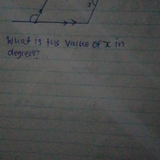 What is the value of x in
degrees?